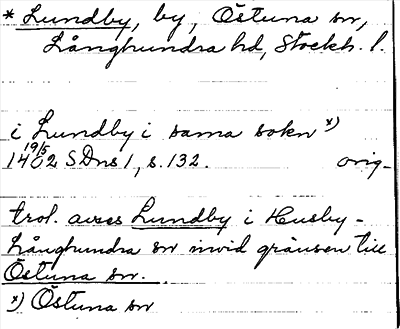 * Lundby, by, Östuna sn,
Långhundra hd, Stockh. l.
i Lundby i sama sokn x)
19/5
1402 SDns 1, s. 132. orig.
trol. avses Lundby i Husby-
Långhundra sn invid gränsen till
Östuna sn.
x) Östuna sn